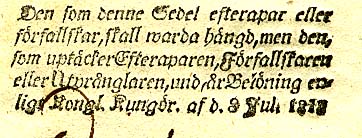 Den som denne Sedel efterapar eller
förfalskar, skall warda hängd, men den,
som uptäcker Efteraparen, Förfalskaren
eller Utprånglaren, undfår Belöning en-
ligt Kongl. Kungör. af d. 8 Jul. 1818